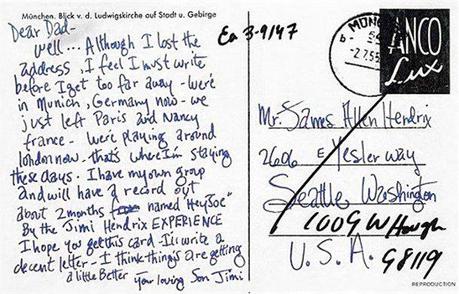 München. Blick v. d. Ludwigskirche auf Stadt u. Gebirge
Dear Dad-
well... Although I lost the
address, I feel I must write
before I get too far away - we're
in Munich, Germany now - we
just left Paris and Nancy
france - we're playing around
london now. that's where I'm staying
these days. I have my own group
and will have a record out
about 2 months named "Hey Joe"
By the Jimi Hendrix EXPERIENCE
I hope you get this card - I'll write a
decent letter -- I think things are getting
a little Better
Your loving Son Jimi
Ea 3-9147
MÜN
ANCO
Lux
Mr. James Allen Hendrix
2606 E Yesler way
Seattle Washington
1009 W Hough
U.S.A. 98119
REPRODUCTION